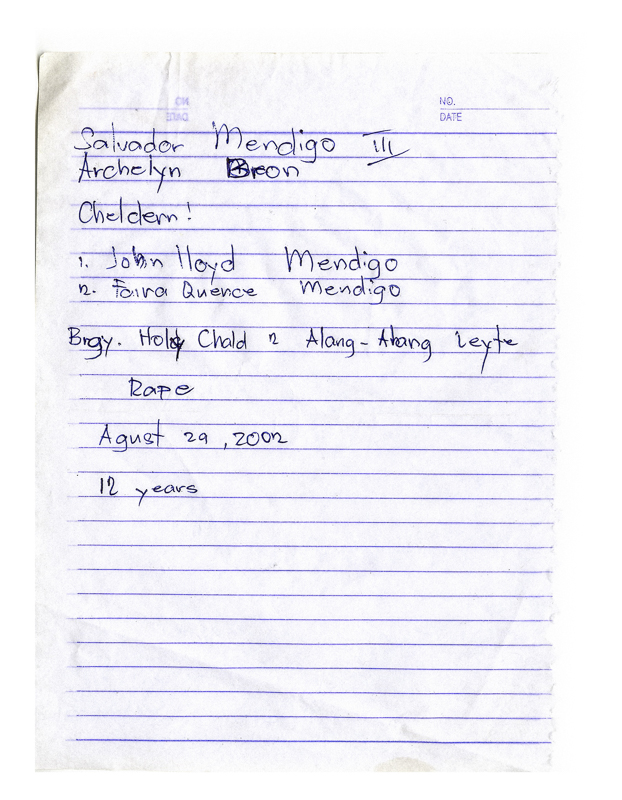 NO.
DATE
Salvador Mendigo III
Archelyn Breon
Cheldern!
1. John lloyd Mendigo
2. Faira Quence Mendigo
Brgy. Holy Chald 2 Alang-Alang Leyte
Rape
Agust 29, 2002
12 years